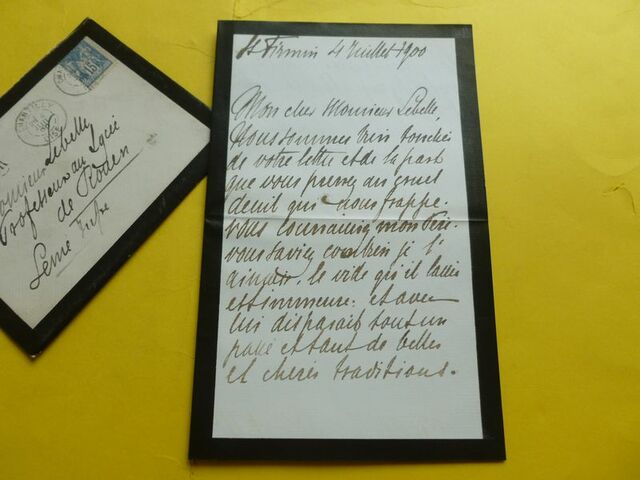 St Firmin 4 Juillet 1900
Mon cher Monsieur Lebelle,
Nous sommes bien touchés
de votre lettre et de la part
que vous prenez au cruel
deuil qui nous frappe.
vous connaissiez mon Père.
vous saviez combien je l'
aimais, le vide qu'il laisse
est immense: et avec
lui disparait tout un
passé et tant de belles
et chères traditions.
15
Monsieur Lebelle
Professeur au Lycée
de Rouen
Seine Infre